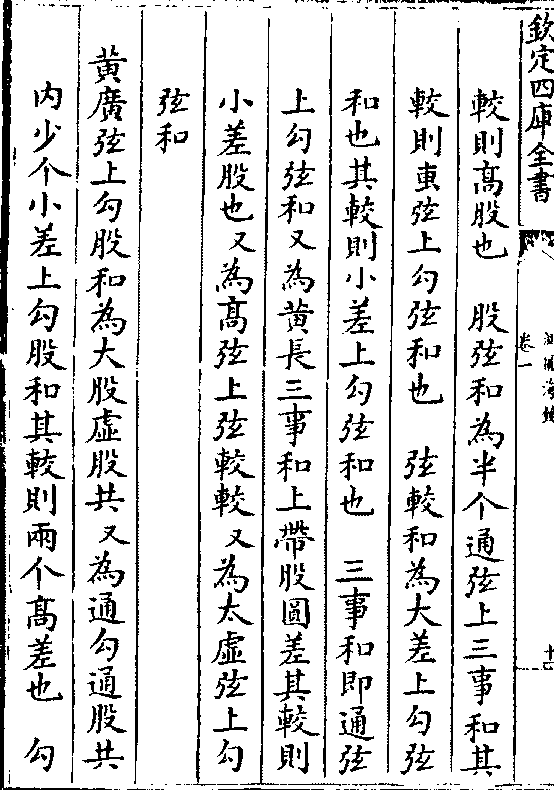 欽定四庫全書
卷一
測圓海鏡
較則髙股也　股弦和為半个通弦上三事和其
較則叀弦上勾弦和也　弦較和為大差上勾弦
和也其較則小差上勾弦和也　三事和即通弦
上勾弦和又為黄長三事和上帶股圓差其較則
小差股也又為髙弦上弦較較又為太虛弦上勾
弦和
黄廣弦上勾股和為大股虛股共又為通勾通股共
内少个小差上勾股和其較則兩个髙差也　勾